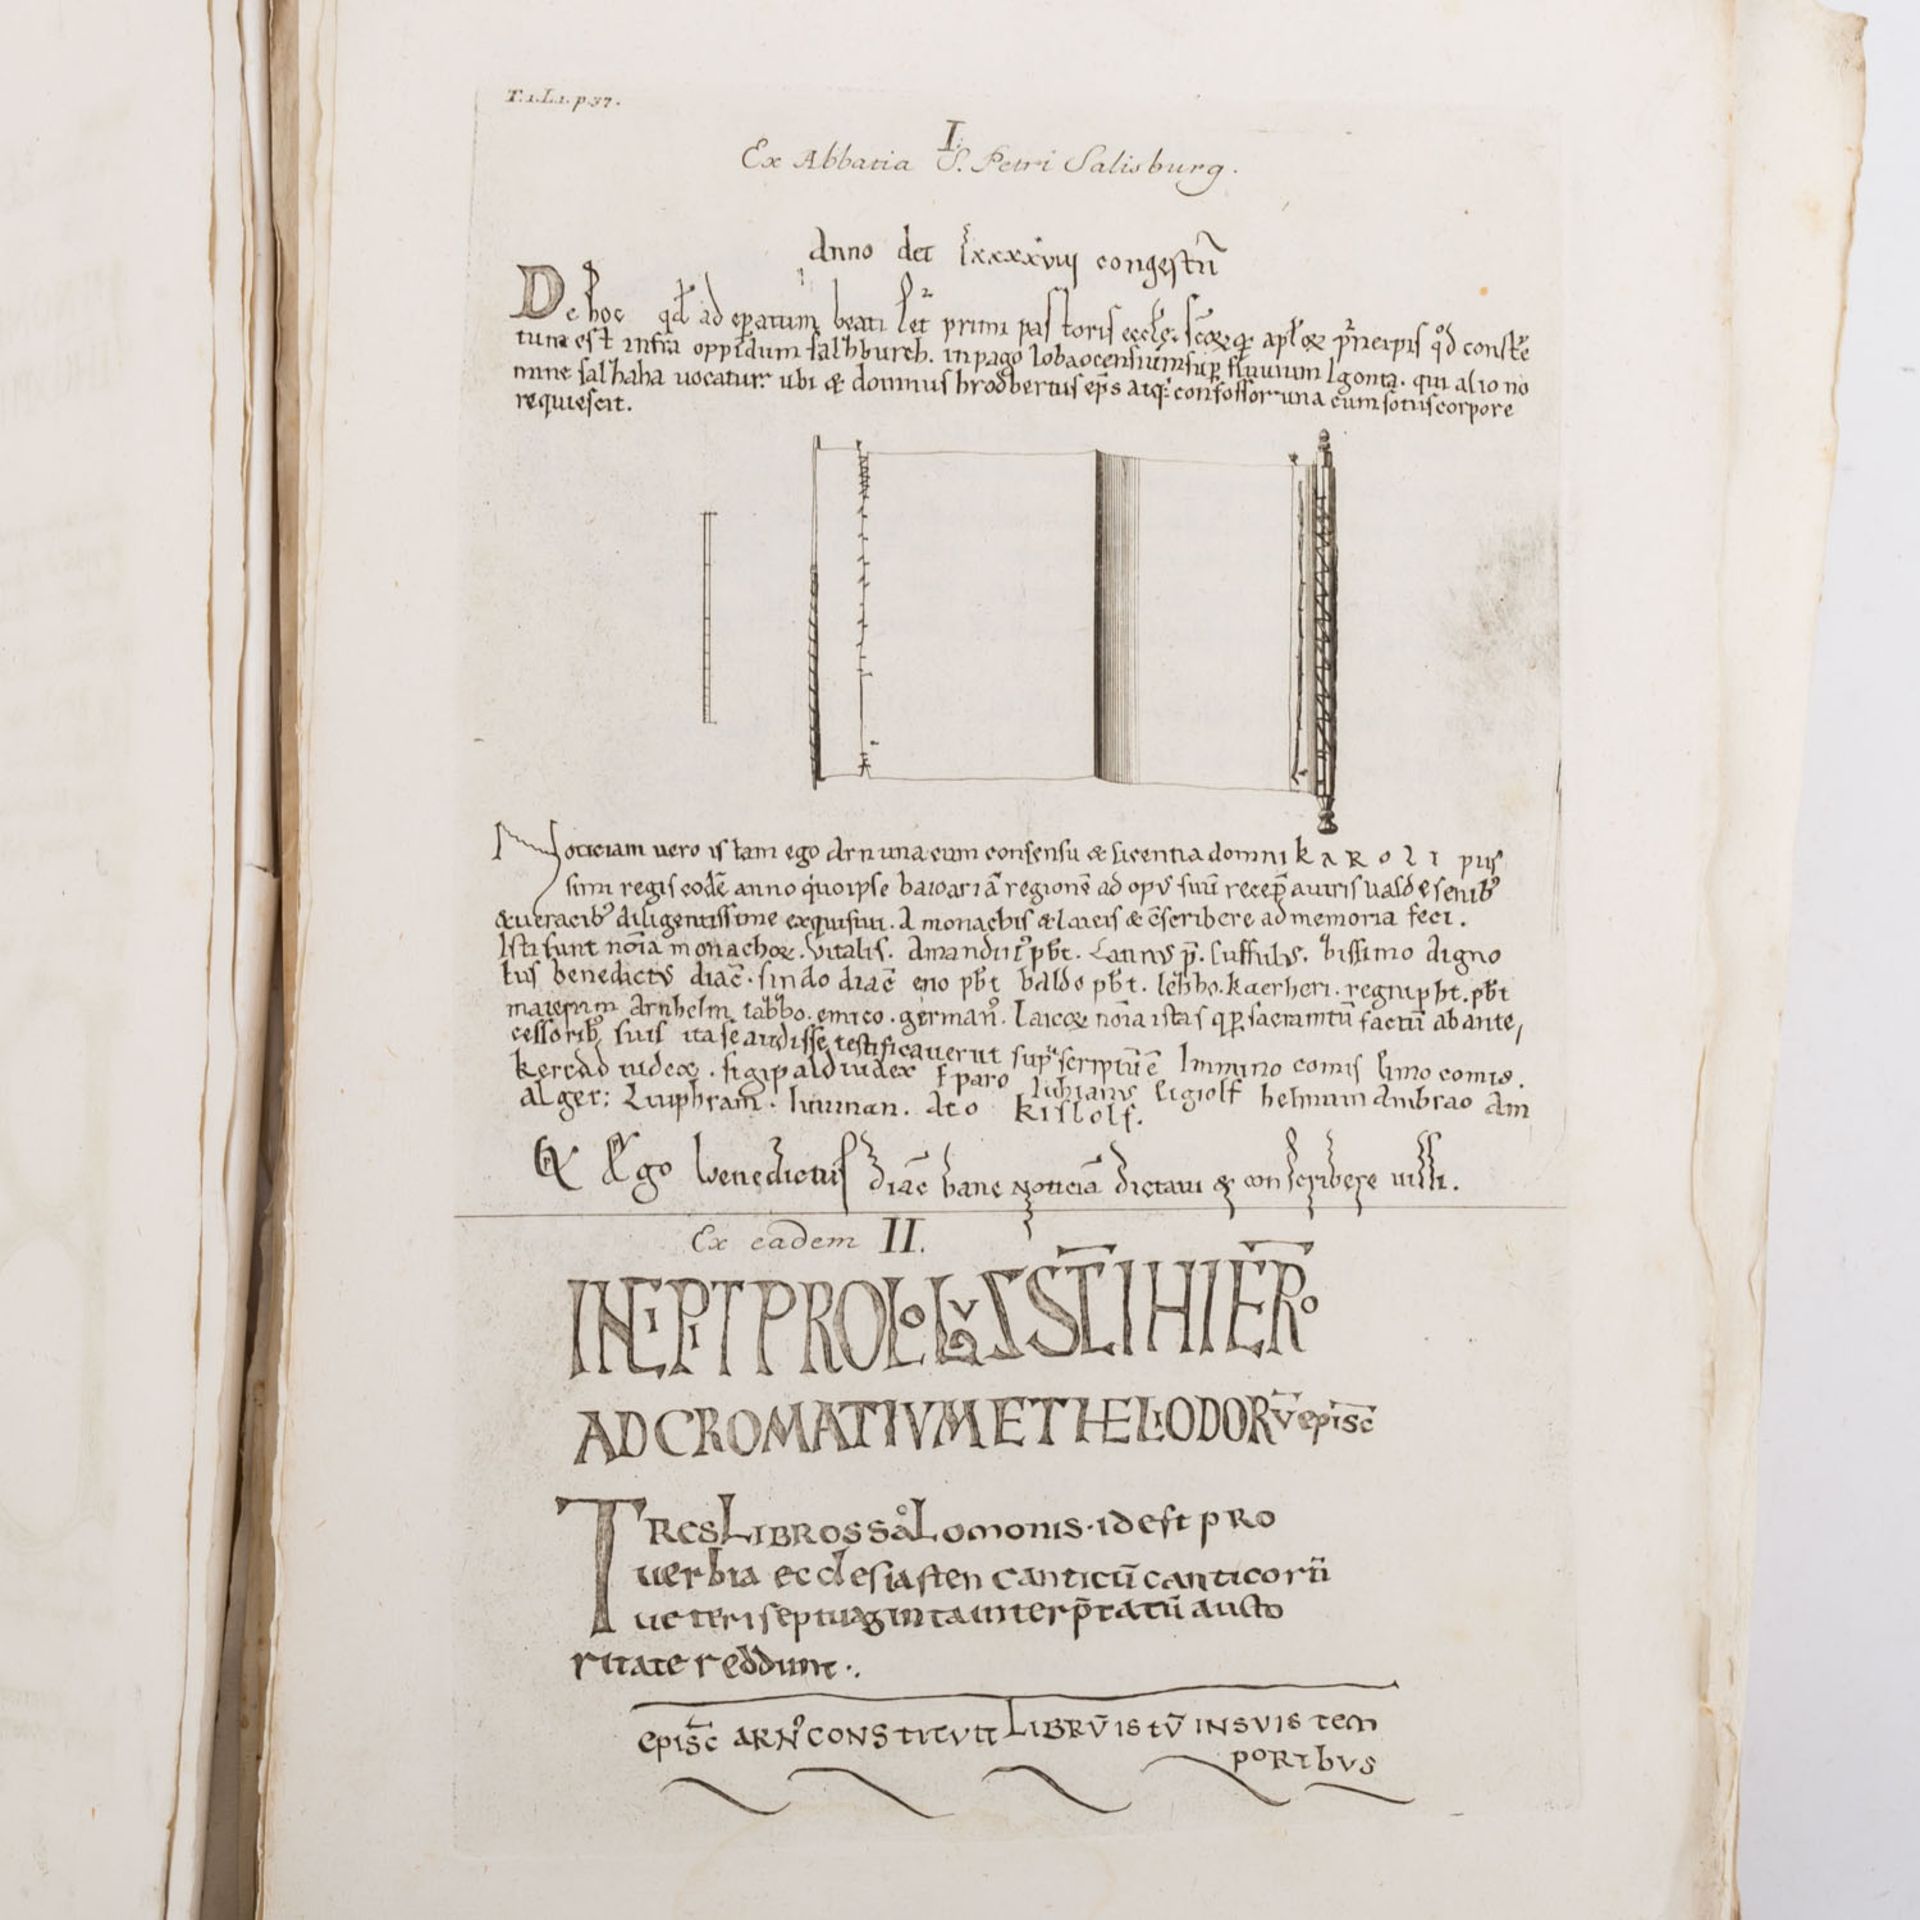 T. 1. L. 1. p. 37.
I.
Ex Abbatia S. Petri Salisburg.
Anno dct lxxxxviii congestū
De hoc qd ad epatum beati Pet primi pastoris
tum est infra oppidum salzburch. in pago Iobaocensium sup fluuium Igonta. qui alio no
mine salzhaha uocatur. ubi & domnus hrodbertus ep̄s atq: confessor una cum sotiis corpore
requiescit.
Noticiam uero istam ego Arn una cum consensu & licentia domni KAROLI piis
simi regis eodē anno quo ipse baioariā regionē ad op; suū recep̄ a uiris ualde senib;
& ueracib; diligentissime exquisiui. A monachis & laicis & c̄scribere ad memoria feci.
Isti sunt nom̄a monachoꝝ. Vitalis. Amandi pb̄t. Bissimo digno
lus benedictus diac̄. sindo diac̄ eio pb̄t baldo pb̄t. kaerheri. pb̄t
Arnhelm tabbo. emico. german. Laicoꝝ nom̄a istas sacramtū factū ab ante,
cessorib; suis ita se audisse testificauerut sup̄scriptū ē Immino comis Pimo comis.
kerrad iudex. sigipald iudex paro Iubianus Ligiolf helmuin Ambrao Am
alger: Liuphram. Iiuuinan. Ato kislolf.
Ego benedictus diac̄ hanc noticiā dictaui & conscribere iussi.
Ex eadem II.
INCIPIT PROLOGVS SC̄I HIER̄O
AD CROMATIVM ET HELIODORV̄ episc̄
TRES LIBROS SALOMONIS · id est pRO
uerbia ecclesiasten canticū canticorū
ueteri septuaginta interp̄tatū aucto
ritate reddunt ·.
episc̄ ARN CONSTITVIT LIBRV̄ ISTV̄ IN SVIS TEM
PORIBVS